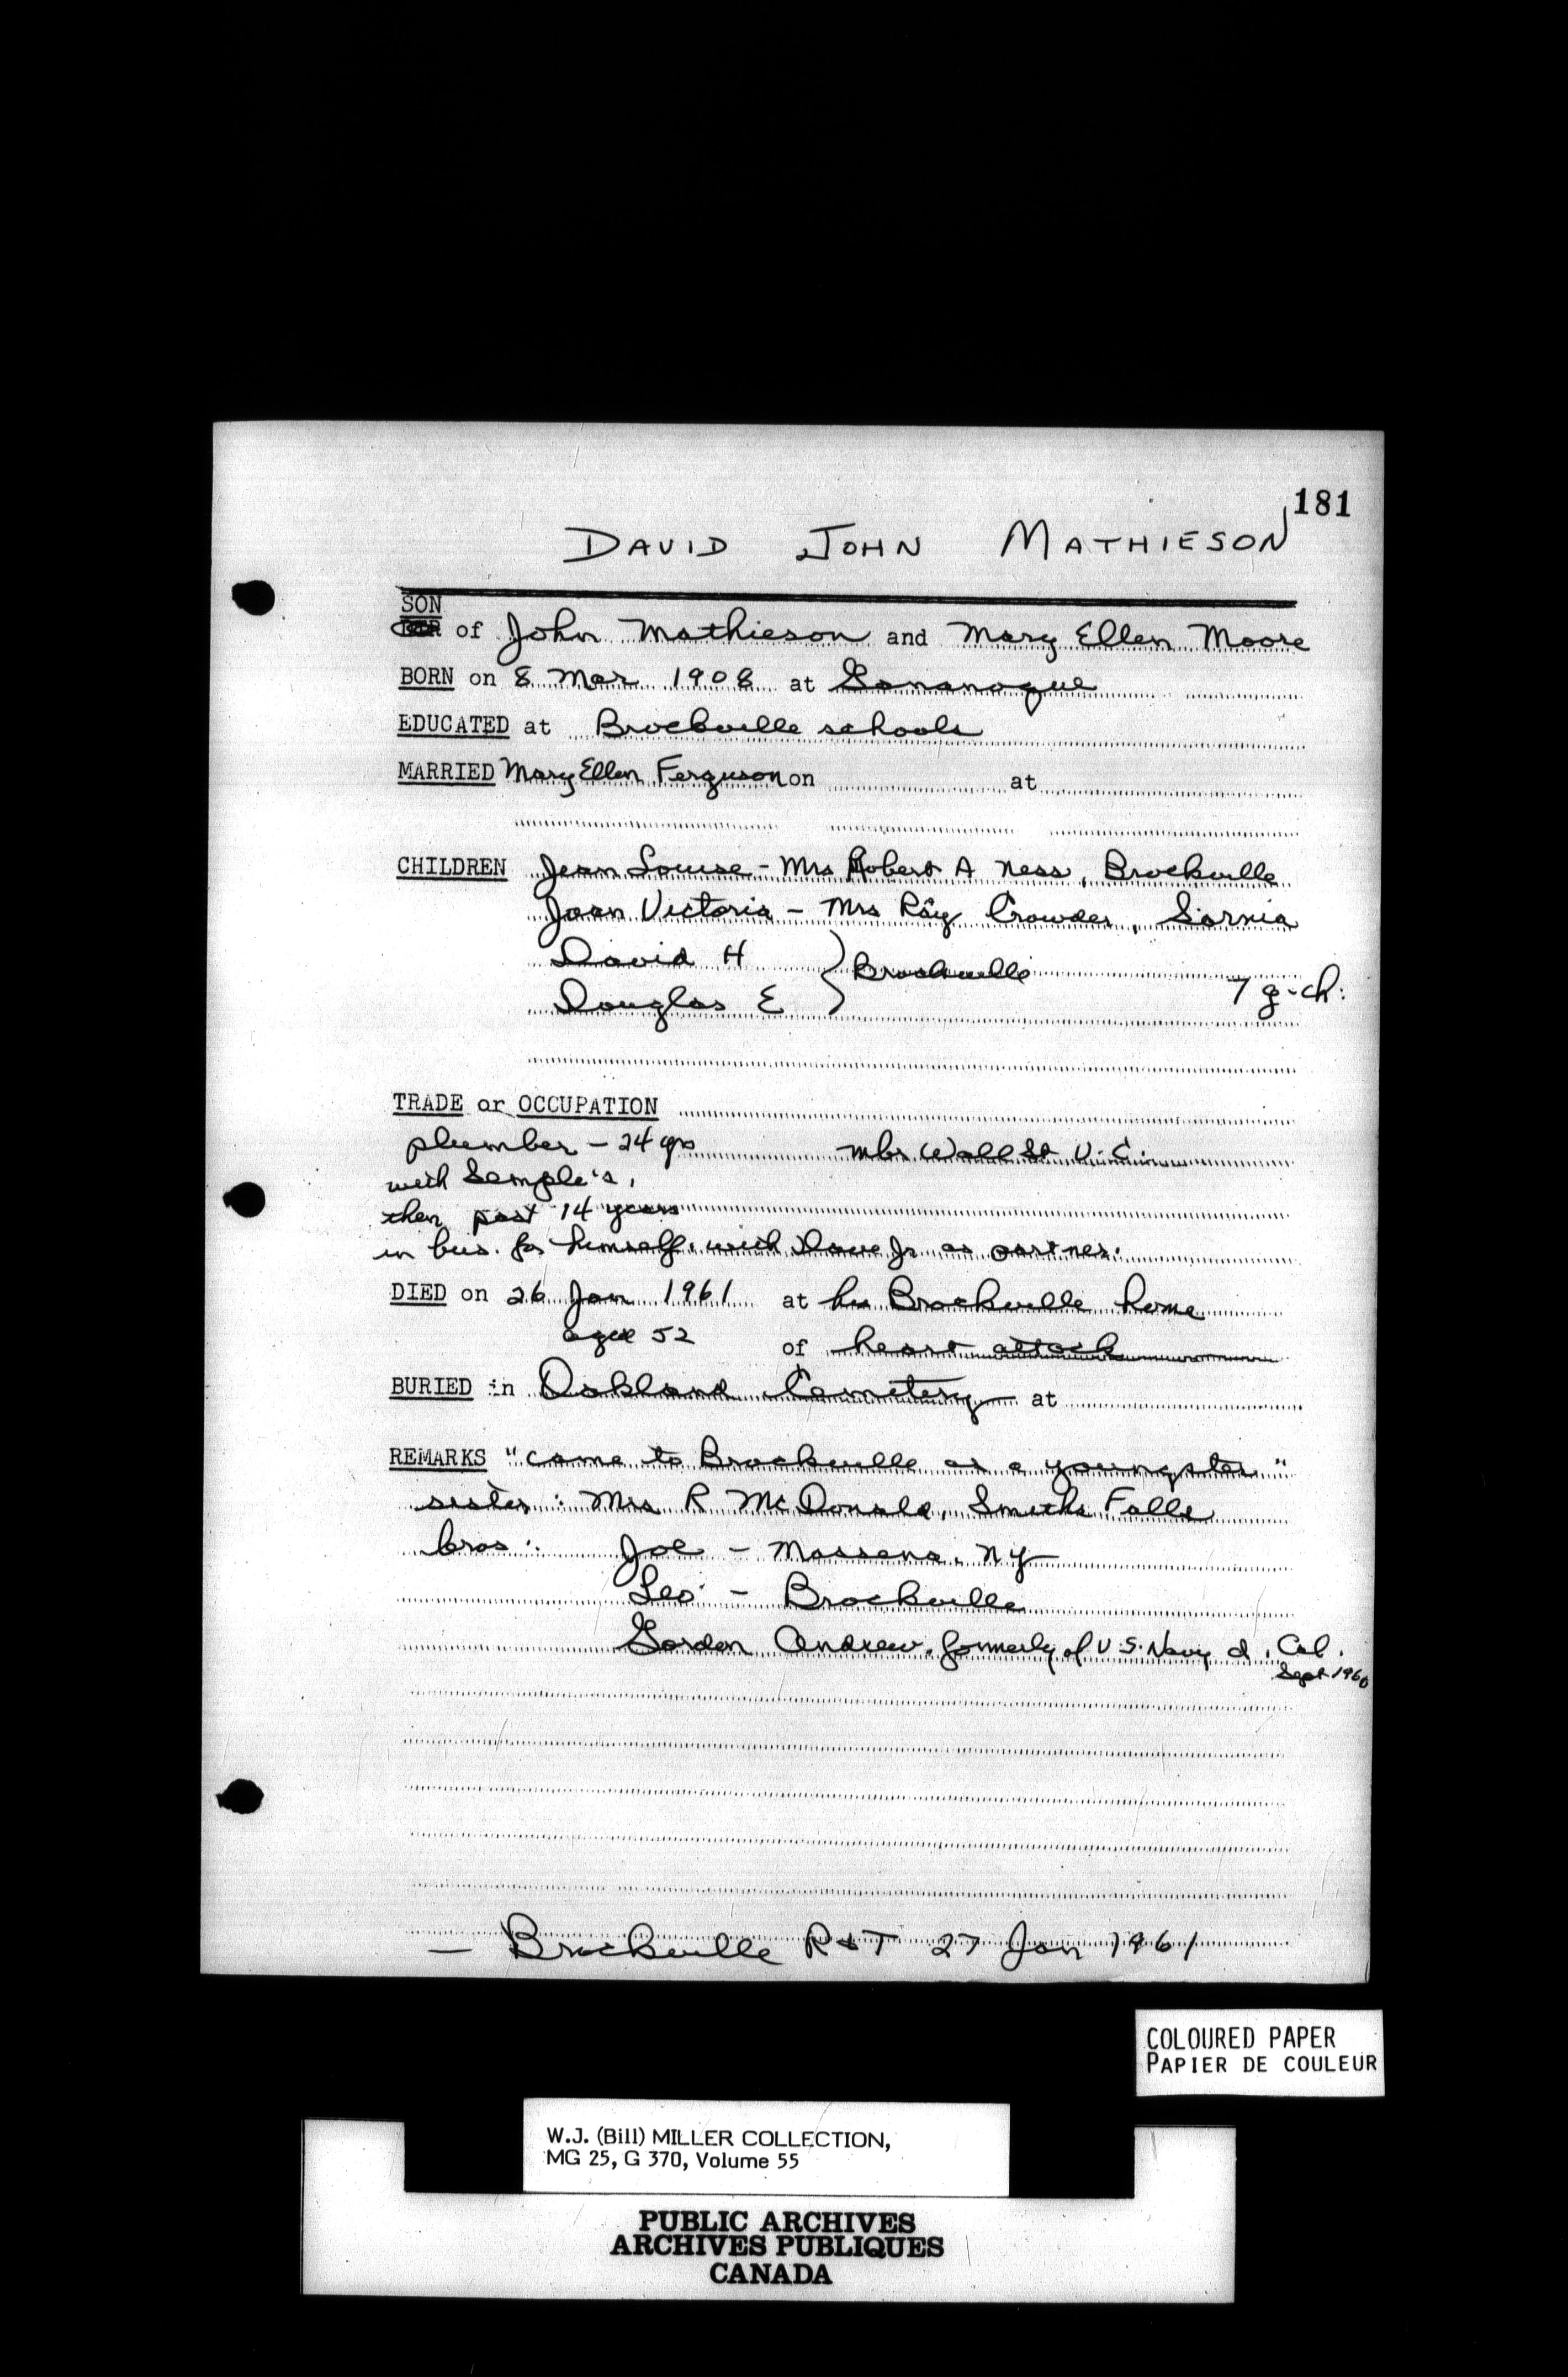 181
DAVID JOHN MATHIESON
SON
DTR of John Mathieson and Mary Ellen Moore
BORN on 8 Mar 1908 at Gananoque
EDUCATED at Brockville schools
MARRIED Mary Ellen Ferguson on at
CHILDREN Jean Louise - Mrs Robert A Ness, Brockville
Joan Victoria - Mrs Ray Crowder, Sarnia
David H } Brockville
Douglas E 7 g-ch:
TRADE or OCCUPATION
plumber - 24 yrs mbr Wall St U.C.
with Semple's,
then past 14 years
in bus. for himself, with Dave Jr as partner.
DIED on 26 Jan 1961 at his Brockville home
aged 52 of heart attack
BURIED in Oakland Cemetery at
REMARKS "came to Brockville as a youngster"
sister: Mrs R McDonald, Smiths Falls
bros: Joe - Massena, NY
Leo - Brockville
Gordon Andrew, formerly of U.S. Navy d. Cal.
Sept 1960
- Brockville R&T 27 Jan 1961
COLOURED PAPER
PAPIER DE COULEUR
W.J. (Bill) MILLER COLLECTION,
MG 25, G 370, Volume 55
PUBLIC ARCHIVES
ARCHIVES PUBLIQUES
CANADA